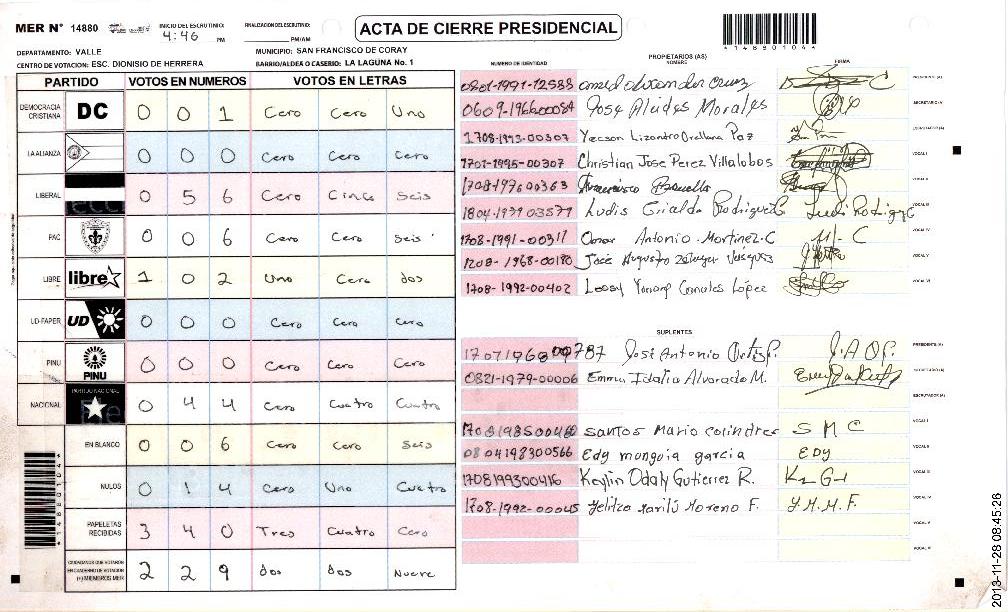 MER N° 14880 INICIO DEL ESCRUTINIO: 4:46 PM FINALIZACION DEL ESCRUTINIO: PM/AM ACTA DE CIERRE PRESIDENCIAL
148801044
DEPARTAMENTO: VALLE MUNICIPIO: SAN FRANCISCO DE CORAY
CENTRO DE VOTACION: ESC. DIONISIO DE HERRERA BARRIO/ALDEA O CASERIO: LA LAGUNA No. 1
PARTIDO VOTOS EN NUMEROS VOTOS EN LETRAS
DEMOCRACIA CRISTIANA DC 0 0 1 Cero Cero Uno
LA ALIANZA 0 0 0 Cero Cero Cero
LIBERAL 0 5 6 Cero Cinco Seis
PAC 0 0 6 Cero Cero Seis
LIBRE libre 1 0 2 Uno Cero dos
UD-FAPER UD 0 0 0 Cero Cero Cero
PINU PINU 0 0 0 Cero Cero Cero
NACIONAL PARTIDO NACIONAL 0 4 4 Cero Cuatro Cuatro
EN BLANCO 0 0 6 Cero Cero Seis
NULOS 0 1 4 Cero Uno Cuatro
PAPELETAS RECIBIDAS 3 4 0 Tres Cuatro Cero
CIUDADANOS QUE VOTARON EN CUADERNO DE VOTACION (+) MIEMBROS MER 2 2 9 dos dos Nueve
PROPIETARIOS (AS)
NUMERO DE IDENTIDAD NOMBRE FIRMA
0801-1991-12583 PRESIDENTE (A)
Jose Alcides Morales SECRETARIO (A)
1708-1993-00307 Yecson Lizandro Orellana Paz ESCRUTADOR (A)
1701-1995-00307 Christian Jose Perez Villalobos VOCAL I
1708-197600363 Francisco VOCAL II
Ludis Giralda Rodriguez VOCAL III
1708-1991-00311 Omar Antonio Martinez C VOCAL IV
1708-1968-00180 José Augusto VOCAL V
1708-1992-00402 Canales López VOCAL VI
SUPLENTES
José Antonio Ortiz P. J.A.O.P. PRESIDENTE (A)
0821-1979-00006 Emma Idalia Alvarado M. SECRETARIO (A)
ESCRUTADOR (A)
Santos Mario Colindres S M C VOCAL I
0804198300566 Edy munguia garcia EDY VOCAL II
1708199300416 Keylin Odaly Gutierrez R. VOCAL III
1708-1992-00045 Yelitza Marilú Moreno F. Y.M.M.F. VOCAL IV
VOCAL V
VOCAL VI
148801044
2013-11-28 08:45:26